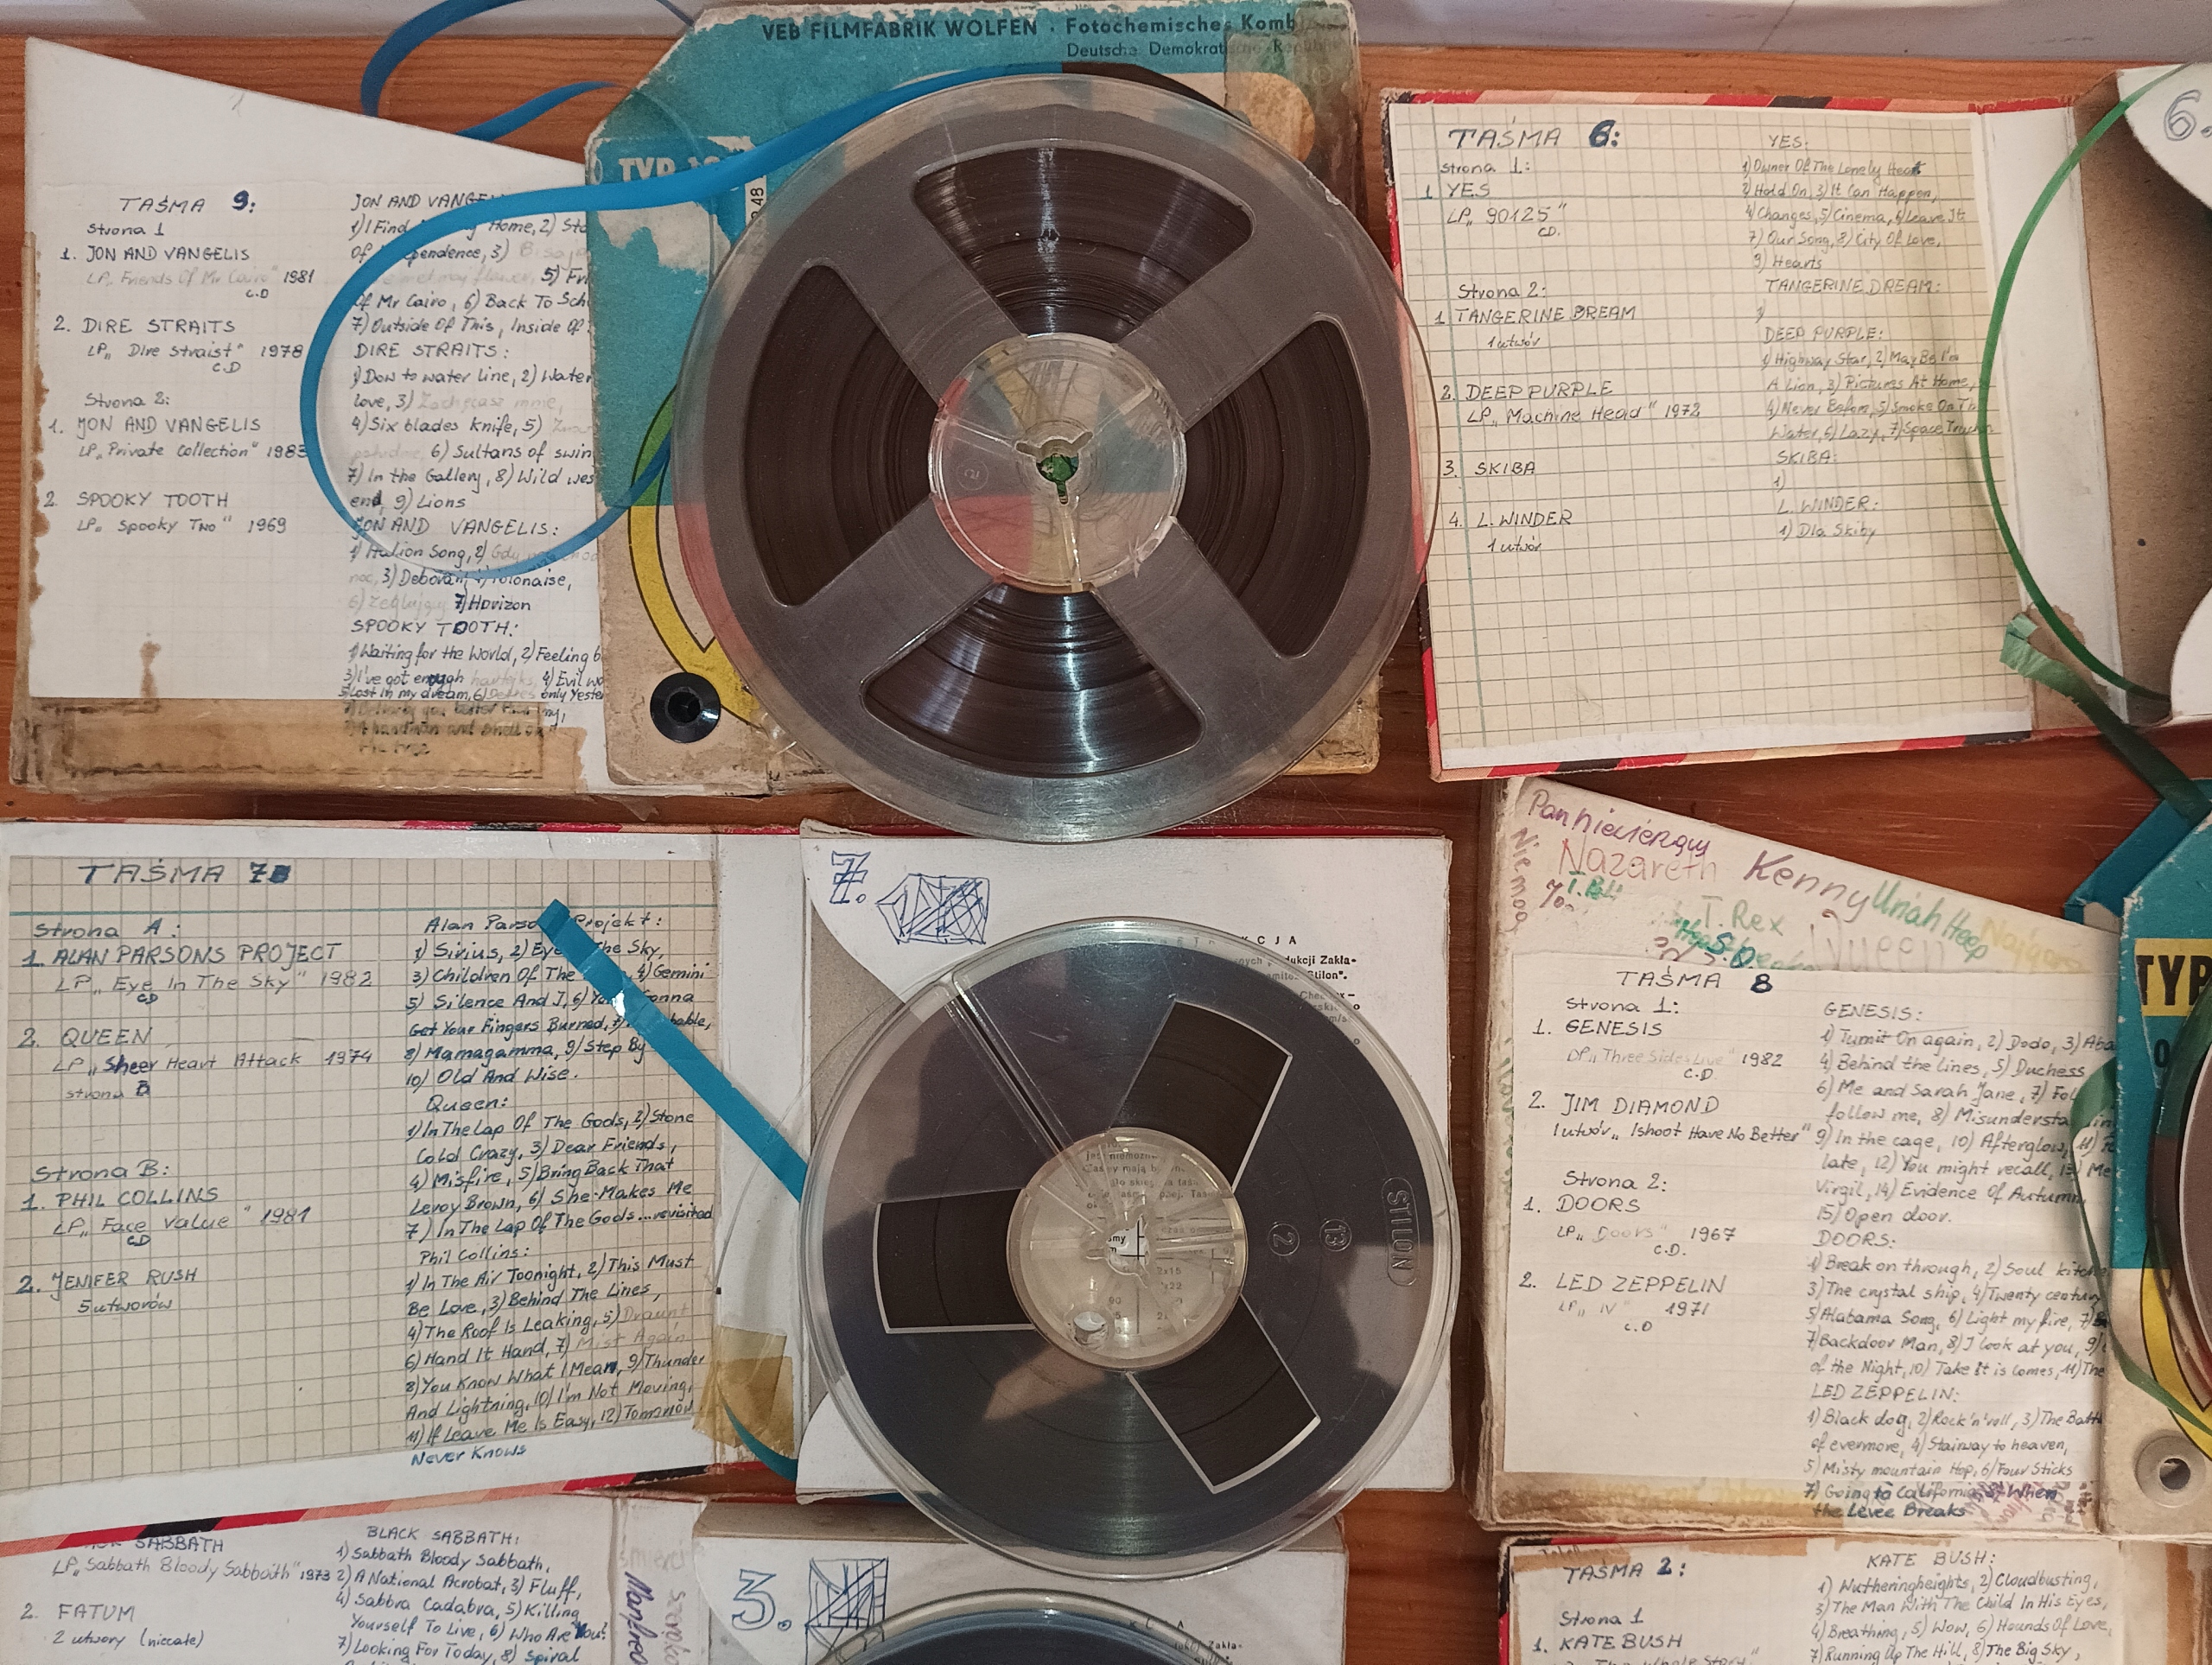 VEB FILMFABRIK WOLFEN · Fotochemisches Komb
Deutsche Demokratische Republik
TYP
TAŚMA 9:
Strona 1
1. JON AND VANGELIS
LP„ Friends Of Mr Cairo" 1981
C.D
2. DIRE STRAITS
LP„ Dire Straist" 1978
C.D
Strona 2:
1. JON AND VANGELIS
LP„ Private Collection" 1983
2. SPOOKY TOOTH
LP„ Spooky Two" 1969
JON AND VANGELIS
1) I Find Home, 2) Sta
Of pendence, 3)
5) Fri
Of Mr Cairo, 6) Back To Sch
7) Outside Of This, Inside Of
DIRE STRAITS:
1) Dow to water line, 2) Water
love, 3) Zachęcasz mnie,
4) Six blades knife, 5)
6) Sultans of swin
7) In the Gallery, 8) Wild wes
end, 9) Lions
JON AND VANGELIS:
1) Italion Song, 2) Gdy
noc, 3) Deborah, 4) Polonaise,
6) 7) Horizon
SPOOKY TOOTH:
1) Waiting for the World, 2) Feeling b
3) I've got enough 4) Evil wo
5) Lost in my dream, 6) only Yeste
TAŚMA 6:
Strona 1:
1 YES
LP„ 90125"
CD.
Strona 2:
1 TANGERINE DREAM
1 utwór
2. DEEP PURPLE
LP„ Machine Head" 1972
3. SKIBA
4. L. WINDER
1 utwór
YES:
1) Owner Of The Lonely Heart
2) Hold On, 3) It Can Happen,
4) Changes, 5) Cinema, 6) Leave It
7) Our Song, 8) City Of Love,
9) Hearts
TANGERINE DREAM:
1)
DEEP PURPLE:
1) Highway Star, 2) May Be I'm
A Lion, 3) Pictures At Home,
4) Never Before, 5) Smoke On Th
Water, 6) Lazy, 7) Space Truckin
SKIBA:
1)
L. WINDER:
1) Dla Skiby
6.
TAŚMA 7
Strona A:
1. ALAN PARSONS PROJECT
LP„ Eye In The Sky" 1982
CD
2. QUEEN
LP„ Sheer Heart Attack 1974
strona B
Strona B:
1. PHIL COLLINS
LP„ Face Value" 1981
CD
2. JENIFER RUSH
5 utworów
Alan Parso Projekt:
1) Sirius, 2) Eye The Sky,
3) Children Of The 4) Gemini
5) Silence And I, 6) You Gonna
Get Your Fingers Burned, 7)
8) Mamagamma, 9) Step By
10) Old And Wise.
Queen:
1) In The Lap Of The Gods, 2) Stone
Cold Crazy, 3) Dear Friends,
4) Misfire, 5) Bring Back That
Leroy Brown, 6) She Makes Me
7) In The Lap Of The Gods...revisited
Phil Collins:
1) In The Air Toonight, 2) This Must
Be Love, 3) Behind The Lines,
4) The Roof Is Leaking, 5) Draunt
6) Hand It Hand, 7) Mist Again
8) You Know What I Mean, 9) Thunder
And Lightning, 10) I'm Not Moving,
11) If Leave Me Is Easy, 12) Tomorrow
Never Knows
7.
STILON
13
2
Nazareth
Kenny
Uriah Heep
T. Rex
Queen
TAŚMA 8
Strona 1:
1. GENESIS
LP„ Three Sides Live" 1982
C.D
2. JIM DIAMOND
1 utwór„ I shoot Have No Better"
Strona 2:
1. DOORS
LP„ Doors" 1967
C.D.
2. LED ZEPPELIN
LP„ IV" 1971
C.D
GENESIS:
1) Turnit On again, 2) Dodo, 3) Aba
4) Behind the lines, 5) Duchess
6) Me and Sarah Jane, 7) Fol
follow me, 8) Misunderstanding
9) In the cage, 10) Afterglow, 11)
late, 12) You might recall, 13) Me
Virgil, 14) Evidence Of Autumn,
15) Open door.
DOORS:
1) Break on through, 2) Soul kitche
3) The crystal ship, 4) Twenty century
5) Alabama Song, 6) Light my fire, 7)
7) Backdoor Man, 8) I look at you, 9)
of the Night, 10) Take it is comes, 11) The
LED ZEPPELIN:
1) Black dog, 2) Rock'n'roll, 3) The Batt
of evermore, 4) Stairway to heaven,
5) Misty mountain Hop, 6) Four Sticks
7) Going to California, 8) When
the Levee Breaks
TYP
SABBATH
LP„ Sabbath Bloody Sabbaith" 1973
2. FATUM
2 utwory (niecałe)
BLACK SABBATH:
1) Sabbath Bloody Sabbath,
2) A National Acrobat, 3) Fluff,
4) Sabbra Cadabra, 5) Killing
Yourself To Live, 6) Who Are You?
7) Looking For Today, 8) Spiral
3.
TAŚMA 2:
Strona 1
1. KATE BUSH
KATE BUSH:
1) Wutheringheights, 2) Cloudbusting,
3) The Man With The Child In His Eyes,
4) Breathing, 5) Wow, 6) Hounds Of Love,
7) Running Up The Hill, 8) The Big Sky,